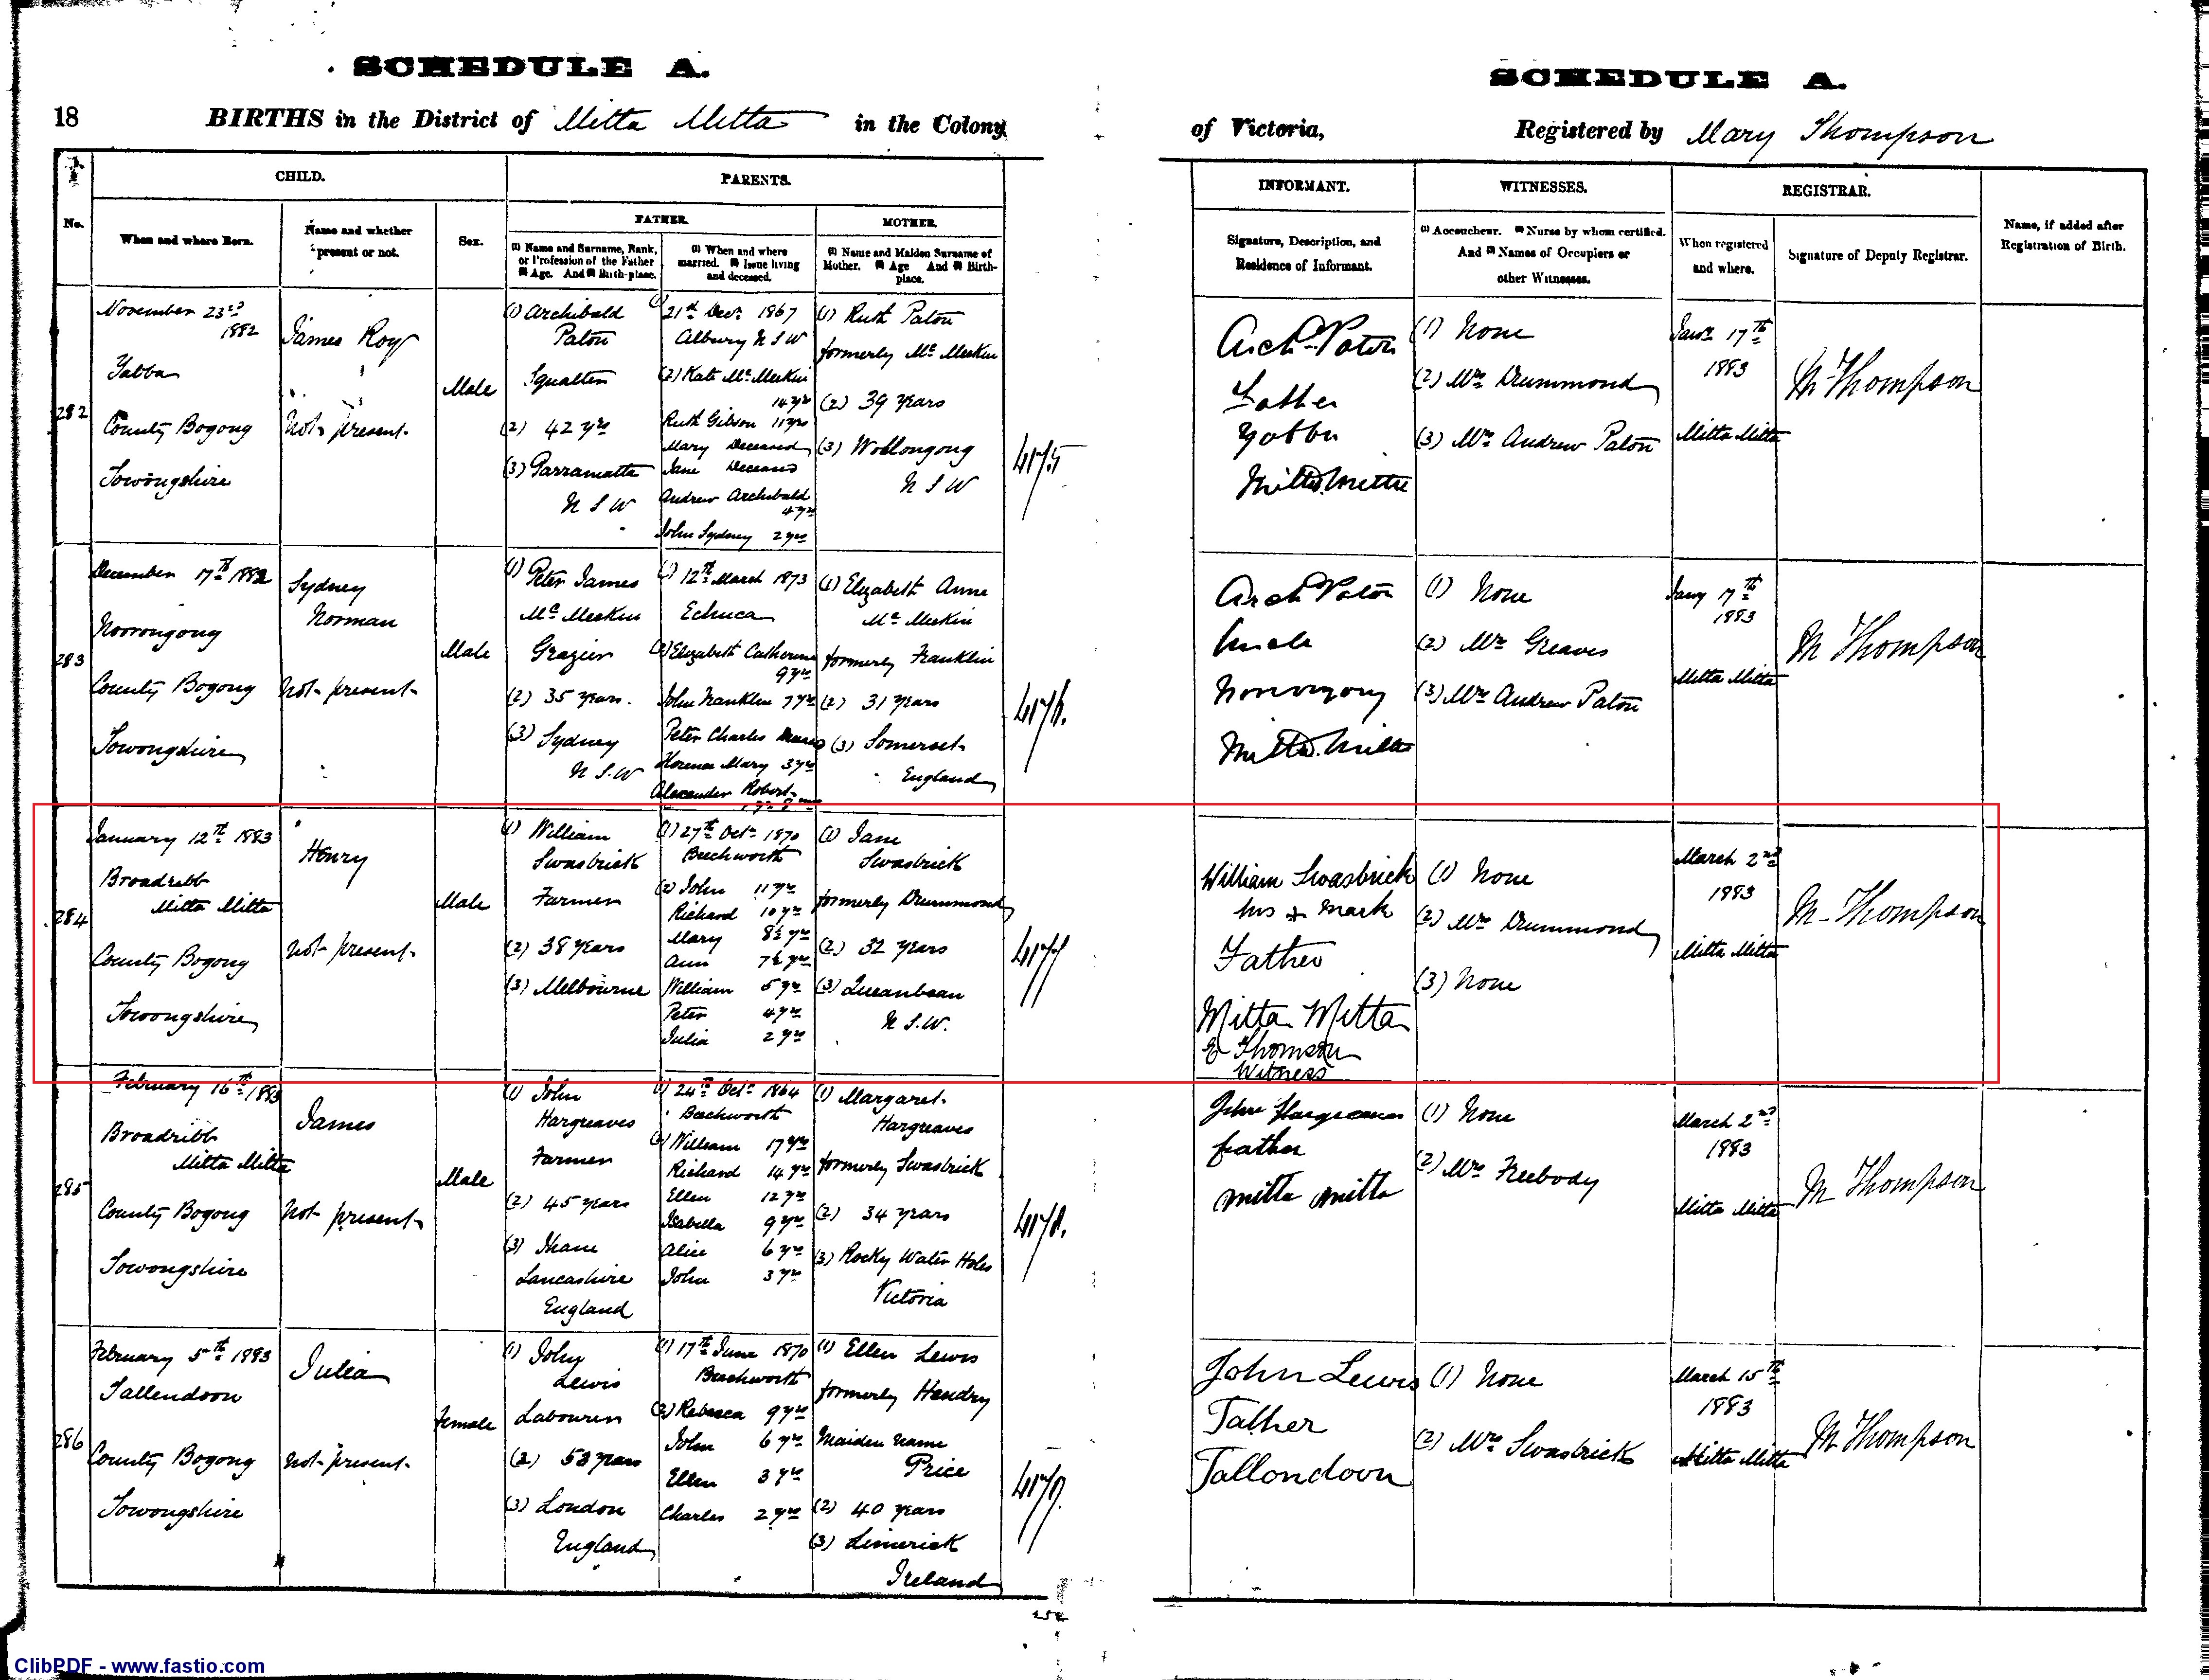 SCHEDULE A.
18 BIRTHS in the District of Mitta Mitta in the Colony
No.
CHILD.
When and where Born.
Name and whether present or not.
Sex.
PARENTS.
FATHER.
(1) Name and Surname, Rank,
or Profession of the Father
(2) Age. And (3) Birth-place.
(1) When and where
married. (2) Issue living
and deceased.
MOTHER.
(1) Name and Maiden Surname of
Mother. (2) Age And (3) Birth-
place.
SCHEDULE A.
of Victoria, Registered by Mary Thompson
INFORMANT.
Signature, Description, and
Residence of Informant.
WITNESSES.
(1) Accoucheur. (2) Nurse by whom certified.
And (3) Names of Occupiers or
other Witnesses.
REGISTRAR.
When registered
and where.
Signature of Deputy Registrar.
Name, if added after
Registration of Birth.
282
November 23rd
1882
Yabba
County Bogong
Towongshire
James Roy
Not present
Male
(1) Archibald
Paton
Squatter
(2) 42 yrs
(3) Parramatta
N S W
(1) 21st Decr 1867
Albury N S W
(2) Kate McMeekin
14 yrs
Ruth Gibson 11 yrs
Mary Deceased
Jane Deceased
Andrew Archibald
4 yrs
John Sydney 2 yrs
(1) Ruth Paton
formerly McMeekin
(2) 39 years
(3) Wollongong
N S W
4175
Archd Paton
Father
Yabba
Mitta Mitta
(1) None
(2) Mrs Drummond
(3) Mrs Andrew Paton
Jany 17th
1883
Mitta Mitta
M Thompson
283
December 17th 1882
Noorongong
County Bogong
Towongshire
Sydney
Norman
Not present
Male
(1) Peter James
McMeekin
Grazier
(2) 35 years.
(3) Sydney
N S.W
(1) 12th March 1873
Echuca
(2) Elizabeth Catherine
9 yrs
John Franklin 7 yrs
Peter Charles
Florence Mary 3 yrs
Alexander Robert
(1) Elizabeth Anne
McMeekin
formerly Franklin
(2) 31 years
(3) Somerset
England
4176.
Archd Paton
Uncle
Noorongong
Mitta Mitta
(1) None
(2) Mrs Greaves
(3) Mrs Andrew Paton
Jany 17th
1883
Mitta Mitta
M Thompson
284
January 12th 1883
Broadribb
Mitta Mitta
County Bogong
Towongshire
Henry
Not present
Male
(1) William
Swasbrick
Farmer
(2) 38 years
(3) Melbourne
(1) 27th Octr 1870
Beechworth
(2) John 11 yrs
Richard 10 yrs
Mary 8½ yrs
Ann 7½ yrs
William 5 yrs
Peter 4 yrs
Julia 2 yrs
(1) Jane
Swasbrick
formerly Drummond
(2) 32 years
(3) Queanbean
N S.W.
4177
William Swasbrick
his x mark
Father
Mitta Mitta
E Thomson
Witness
(1) None
(2) Mrs Drummond
(3) None
March 2nd
1883
Mitta Mitta
M Thompson
285
February 16th 1883
Broadribb
Mitta Mitta
County Bogong
Towongshire
James
Not present
Male
(1) John
Hargreaves
Farmer
(2) 45 years
(3)
Lancashire
England
(1) 24th Octr 1864
Beechworth
(2) William 17 yrs
Richard 14 yrs
Ellen 12 yrs
Isabella 9 yrs
Alice 6 yrs
John 3 yrs
(1) Margaret
Hargreaves
formerly Swasbrick
(2) 34 years
(3) Rocky Water Holes
Victoria
4178.
John Hargreaves
father
Mitta Mitta
(1) None
(2) Mrs Freebody
March 2nd
1883
Mitta Mitta
M Thompson
286
February 5th 1883
Tallandoon
County Bogong
Towongshire
Julia
Not present
Female
(1) John
Lewis
Labourer
(2) 53 years
(3) London
England
(1) 17th June 1870
Beechworth
(2) Rebecca 9 yrs
John 6 yrs
Ellen 3 yrs
Charles 2 yrs
(1) Ellen Lewis
formerly Hendry
Maiden name
Price
(2) 40 years
(3) Limerick
Ireland
4179.
John Lewis
Father
Tallondoon
(1) None
(2) Mrs Swasbrick
March 15th
1883
Mitta Mitta
M Thompson
ClibPDF - www.fastio.com